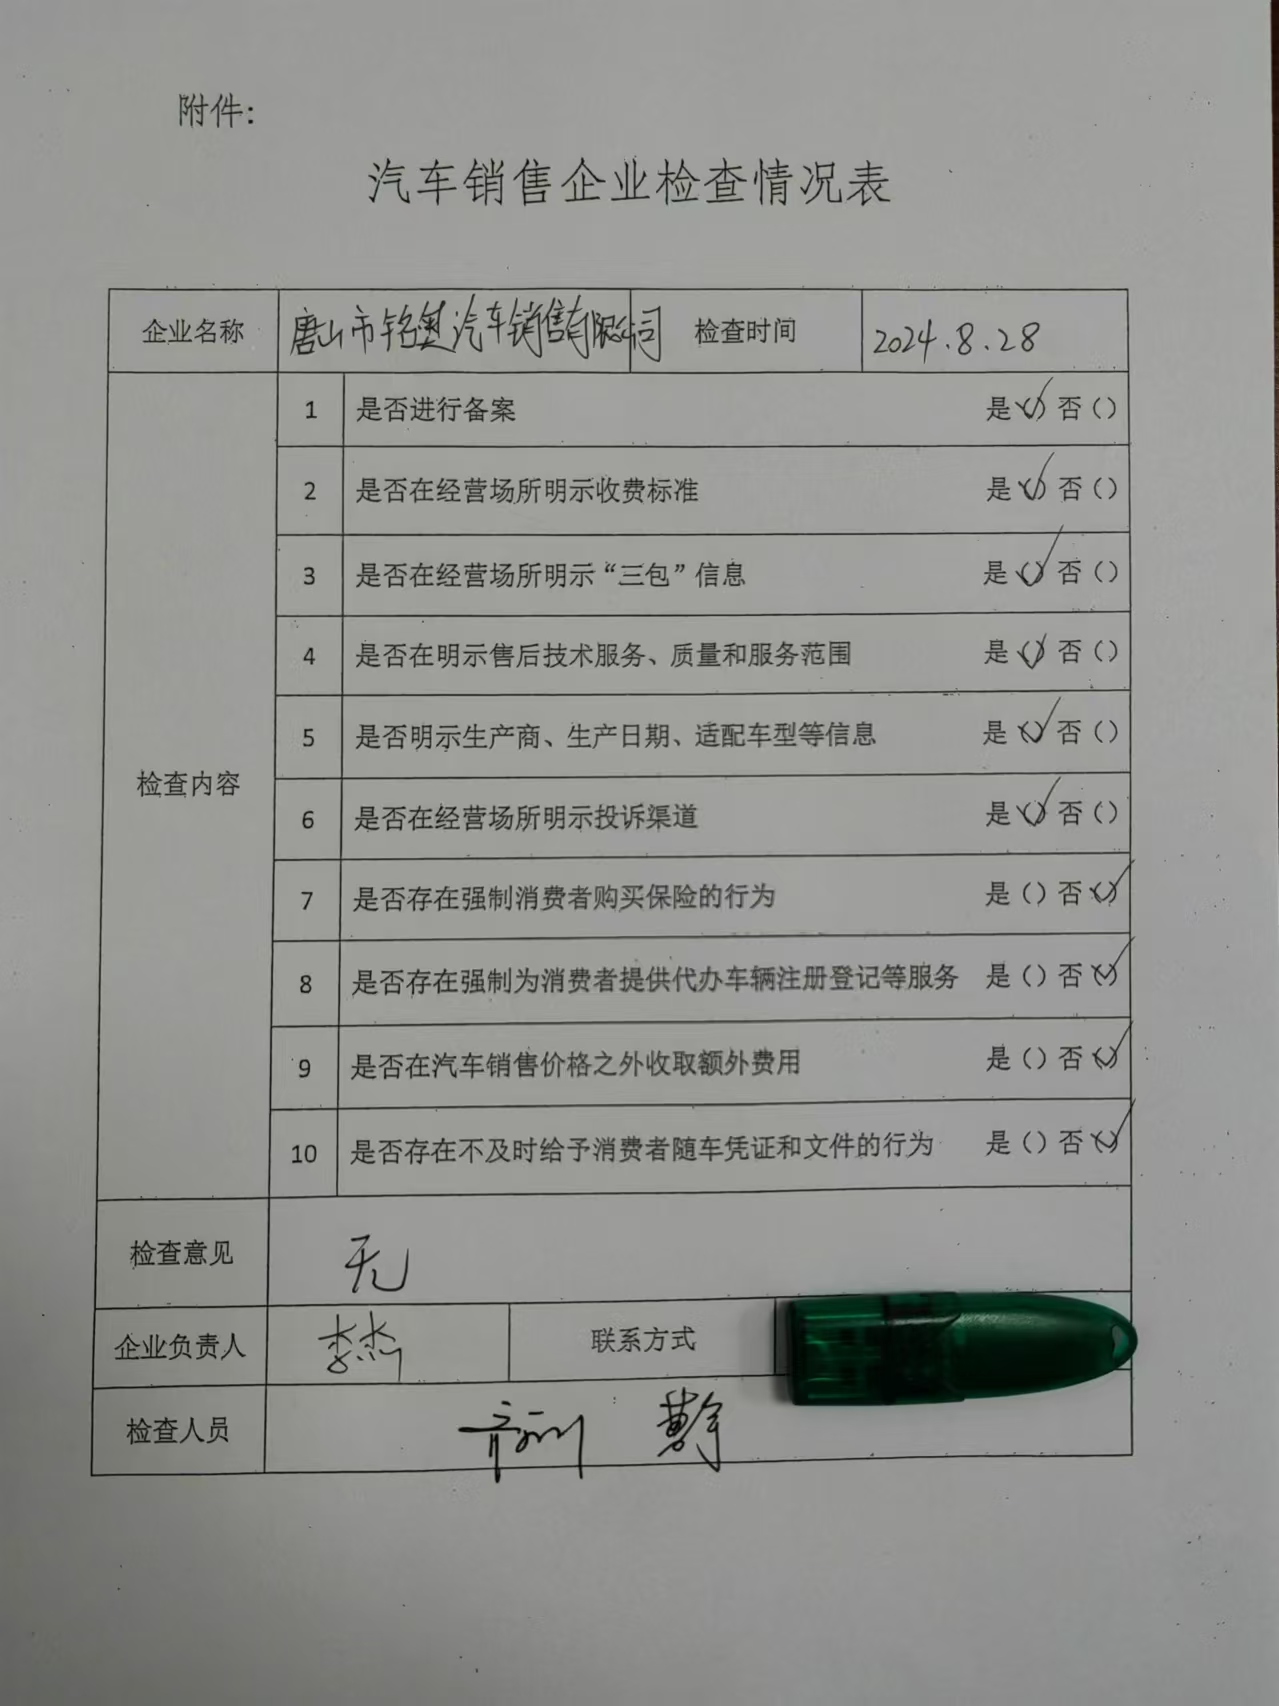 附件：
汽车销售企业检查情况表
企业名称 唐山市铭奥汽车销售有限公司 检查时间 2024.8.28
检查内容
1 是否进行备案 是(√) 否()
2 是否在经营场所明示收费标准 是(√) 否()
3 是否在经营场所明示“三包”信息 是(√) 否()
4 是否在明示售后技术服务、质量和服务范围 是(√) 否()
5 是否明示生产商、生产日期、适配车型等信息 是(√) 否()
6 是否在经营场所明示投诉渠道 是(√) 否()
7 是否存在强制消费者购买保险的行为 是() 否(√)
8 是否存在强制为消费者提供代办车辆注册登记等服务 是() 否(√)
9 是否在汽车销售价格之外收取额外费用 是() 否(√)
10 是否存在不及时给予消费者随车凭证和文件的行为 是() 否(√)
检查意见 无
企业负责人 李杰 联系方式
检查人员